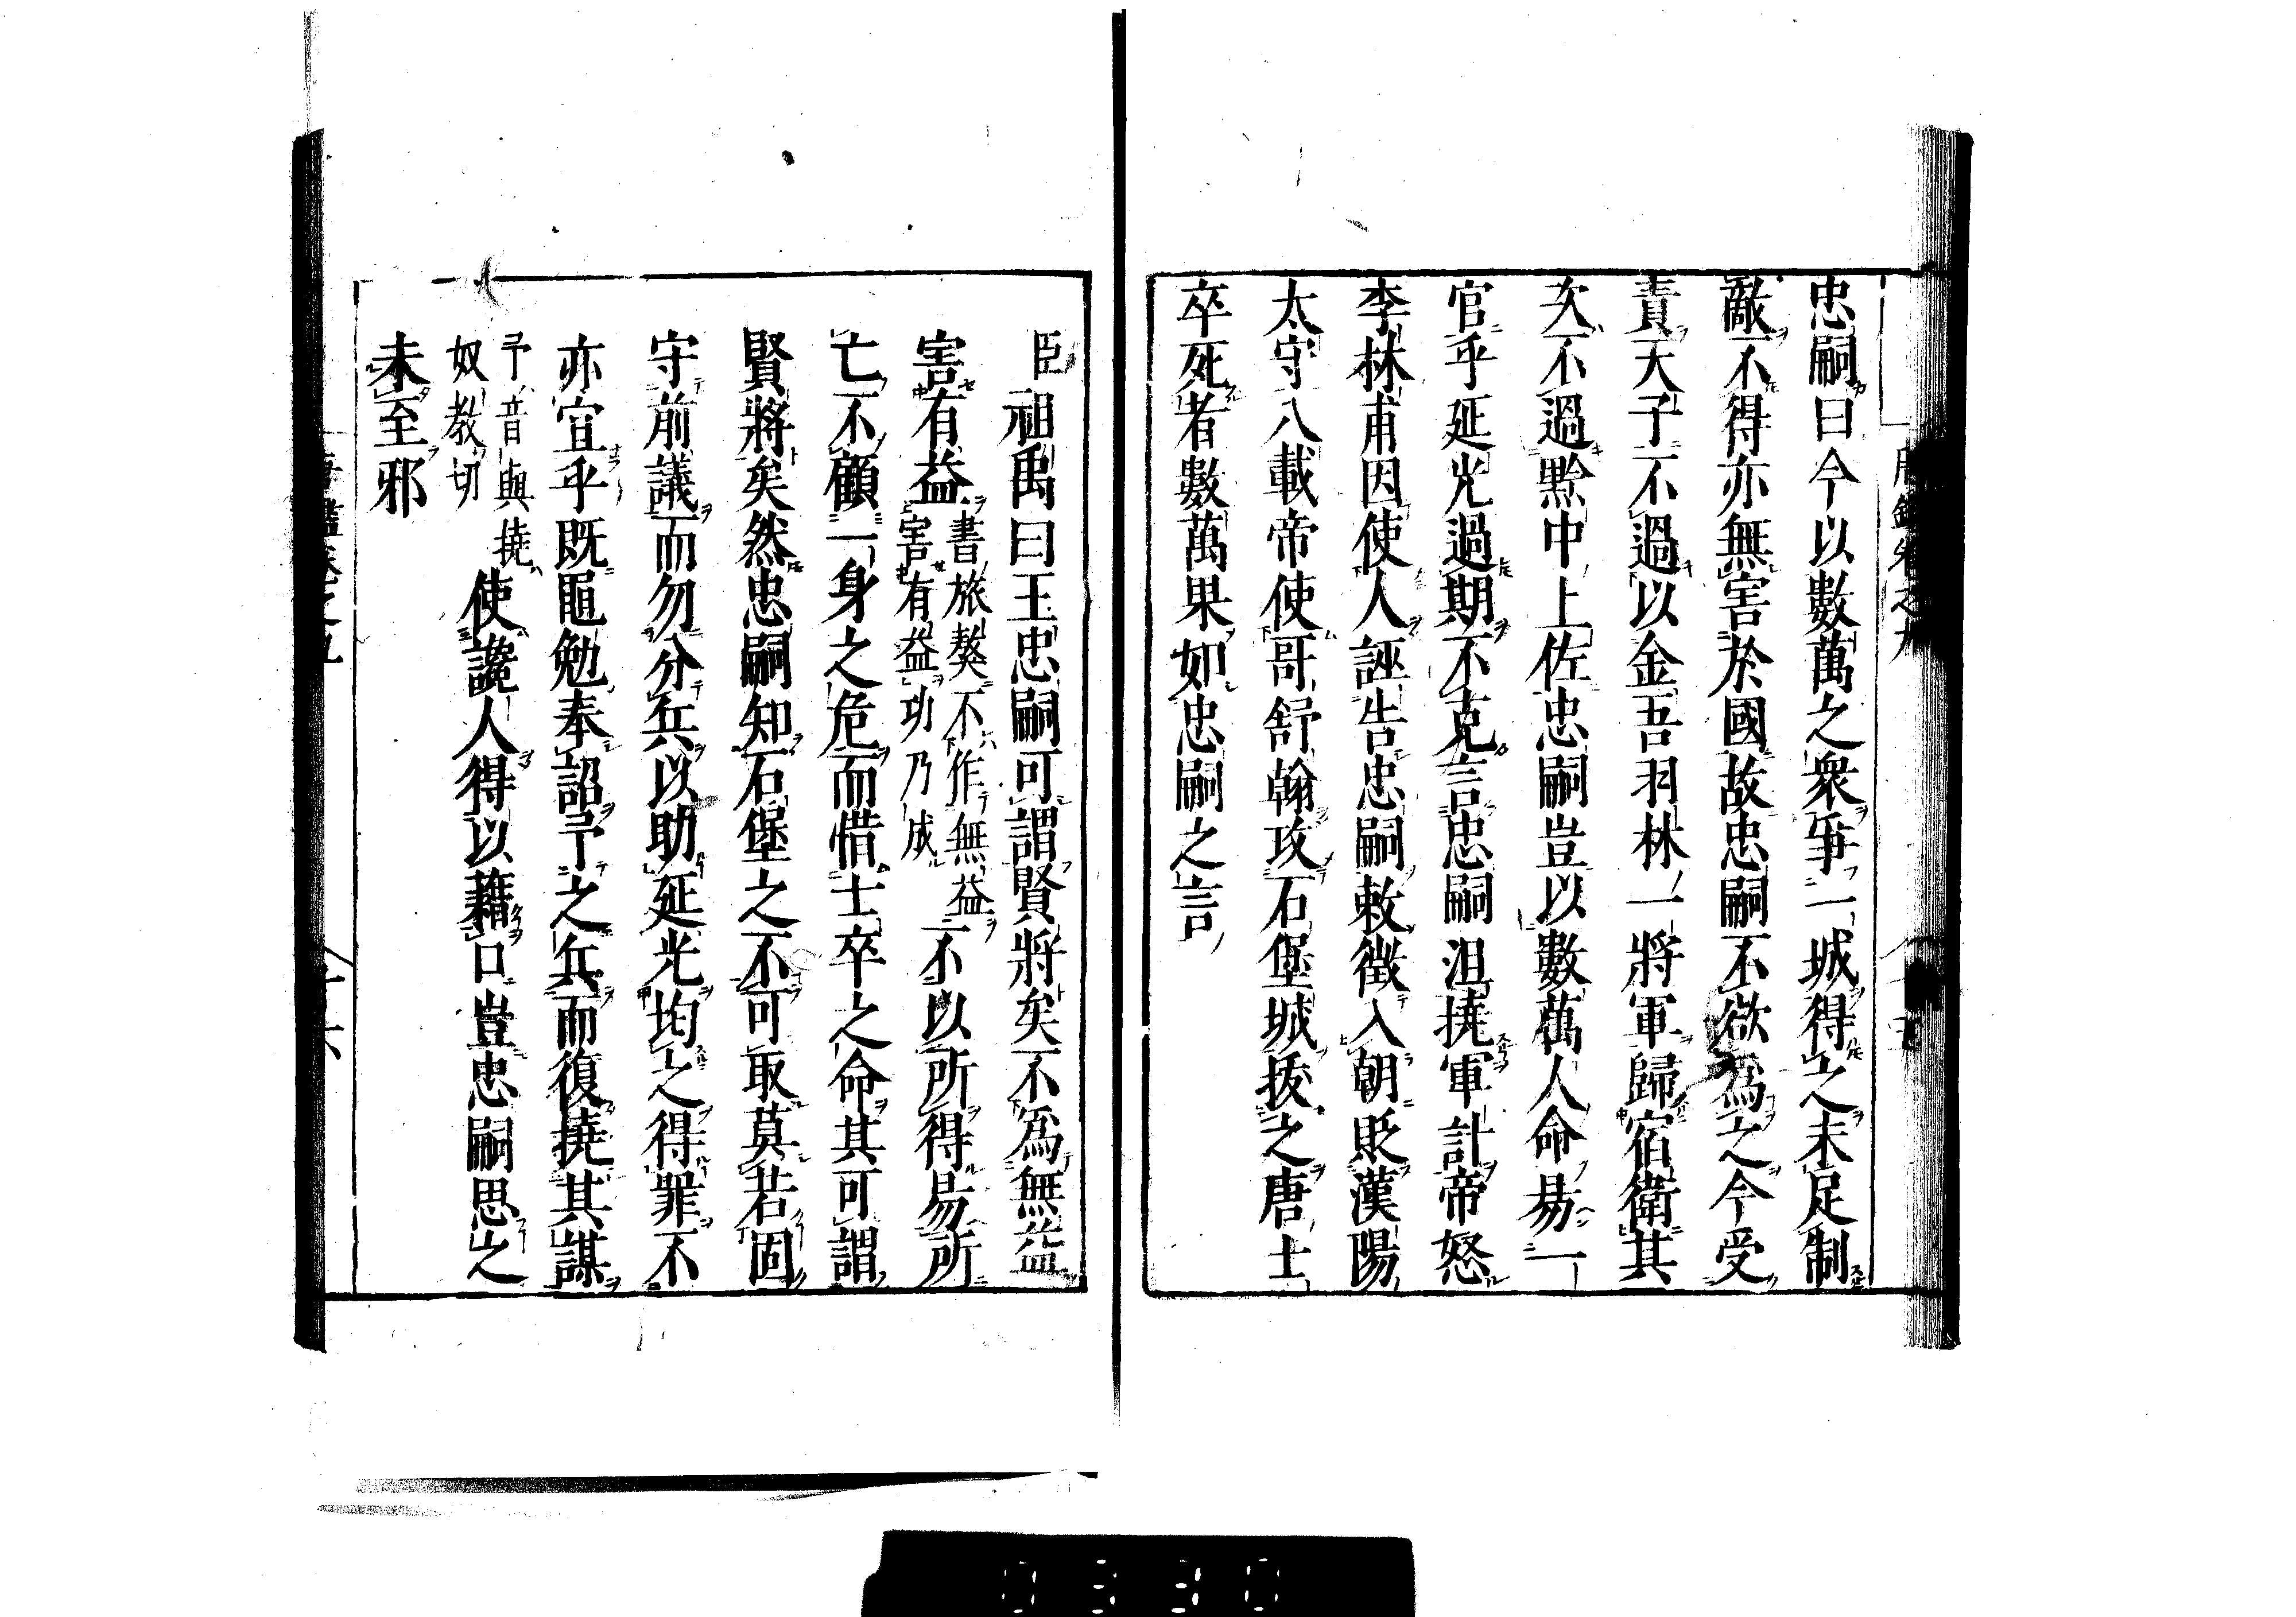 忠嗣曰今以數萬之衆爭一城得之未足制
敵不得亦無害於國故忠嗣不欲為之今受
責天子不過以金吾羽林一將軍歸宿衛其
次不過黔中上佐忠嗣豈以數萬人命易一
官乎延光過期不克言忠嗣沮撓軍計帝怒
李林甫因使人誣告忠嗣敕徵入朝貶漢陽
太守八載帝使哥舒翰攻石堡城拔之唐士
卒死者數萬果如忠嗣之言
臣祖禹曰王忠嗣可謂賢將矣不為無益
害有益書旅獒不作無益害有益功乃成不以所得易所
亡不顧一身之危而惜士卒之命其可謂
賢將矣然忠嗣知石堡之不可取莫若固
守前議而勿分兵以助延光均之得罪不
亦宜乎既黽勉奉詔予之兵而復撓其謀
予音與撓奴教切使讒人得以藉口豈忠嗣思之
未至邪
唐鑑卷之九
十六
0330